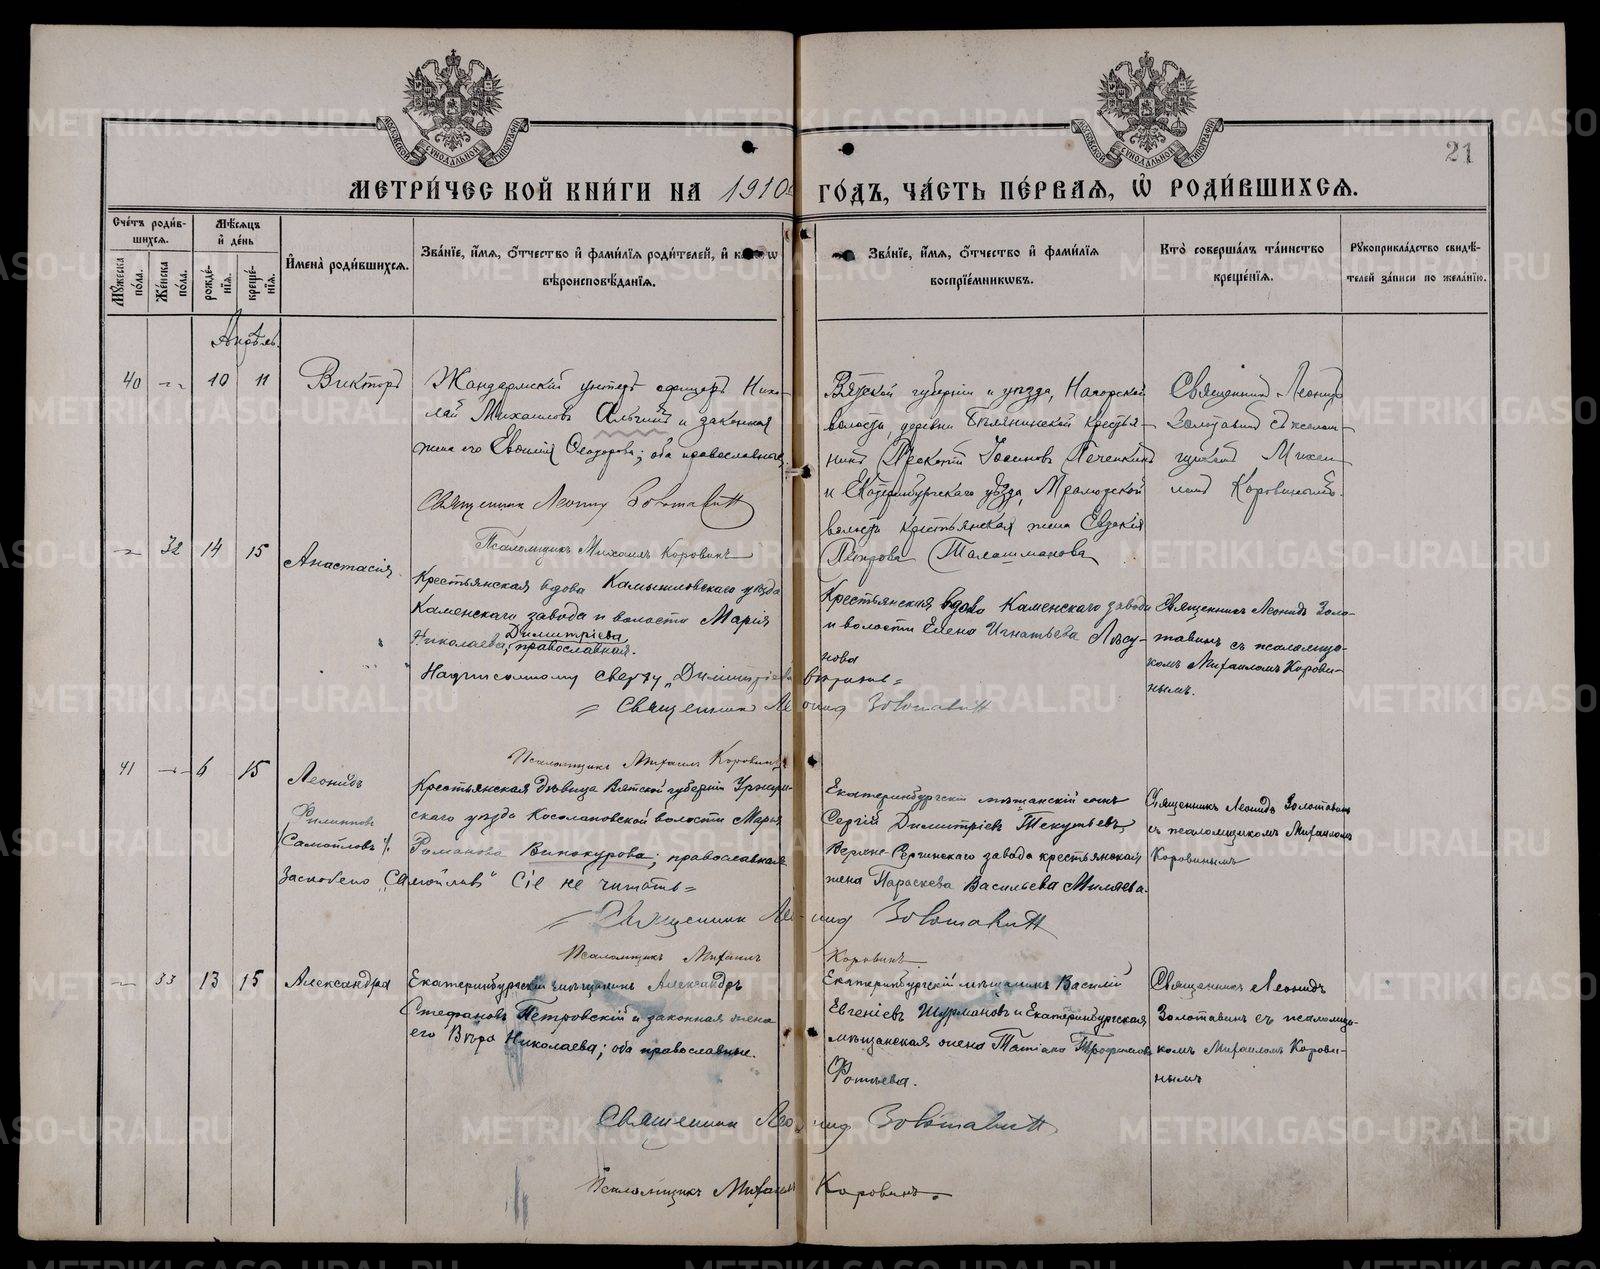 METRIKI.GASO-URAL.RU
МОСКОВСКОЙ СѴНОДАЛЬНОЙ ТИПОГРАФІИ
МОСКОВСКОЙ СѴНОДАЛЬНОЙ ТИПОГРАФІИ
21
МЕТРИ́ЧЕСКОЙ КНИ́ГИ НА 1910 ГО́ДЪ, ЧА́СТЬ ПЕ́РВАѦ, Ѡ РОДИ́ВШИХСѦ.
Сче́тъ роди́в-
шихсѧ.
Мꙋ́жеска по́ла.
Же́нска по́ла.
Мѣ́сѧцъ
и҆ де́нь
рожде́-
нїѧ.
креще́-
нїѧ.
И҆мена̀ роди́вшихсѧ.
Зва́нїе, и҆́мѧ, ѻ҆́тчество и҆ фами́лїѧ роди́телей, и҆
вѣроисповѣ́данїѧ.
Зва́нїе, и҆́мѧ, ѻ҆́тчество и҆ фами́лїѧ
воспрїе́мникѡвъ.
Кто̀ соверша́лъ та́инство
креще́нїѧ.
Рꙋкоприкла́дство свидѣ́-
телей за́писи по жела́нїю.
Апрѣль.
40 10 11
Викторъ
Жандармскій унтеръ офицеръ Нико-
лай Михаиловъ и законная
жена его Евдокія Ѳеодорова; оба православные.
Священникъ Леонидъ Золотавинъ
Псаломщикъ Михаилъ Коровинъ
Вятской губерніи и уѣзда,
волости, деревни крестья-
нинъ Прокопій Печенкинъ
и Екатеринбургскаго уѣзда, Мраморской
волости крестьянская жена Евдокія
Петрова Талашманова
Священникъ Леонидъ
Золотавинъ съ псалом-
щикомъ Михаи-
ломъ Коровинымъ.
32 14 15
Анастасія
Крестьянская вдова Камышловскаго уѣзда
Каменскаго завода и волости Марія
Николаева Димитріева, православная.
Надписанному сверху „Димитріева" вѣрить=
= Священникъ Леонидъ Золотавинъ
Псаломщикъ Михаилъ Коровинъ
Крестьянская вдова Каменскаго завода
и волости Елена Игнатьева Лязу-
нова
Священникъ Леонидъ Золо-
тавинъ съ псаломщи-
комъ Михаиломъ Корови-
нымъ.
41 6 15
Леонидъ
Филипповъ
(Самойловъ).
Крестьянская дѣвица Вятской губерніи Уржум-
скаго уѣзда Косолаповской волости Марья
Романова Винокурова; православная
Заскоблено „Самойловъ" сіе не читать=
= Священникъ Леонидъ Золотавинъ
Псаломщикъ Михаилъ Коровинъ
Екатеринбургскій мѣщанскій сынъ
Сергій Димитріевъ Текутьевъ,
Верхне-Сергинскаго завода крестьянская
жена Параскева Васильева Миляева.
Священникъ Леонидъ Золотавинъ
съ псаломщикомъ Михаиломъ
Коровинымъ
33 13 15
Александра
Екатеринбургскій мѣщанинъ Александръ
Стефановъ Петровскій и законная жена
его Вѣра Николаева; оба православные.
Екатеринбургскій мѣщанинъ Василій
Евгеніевъ Шурмановъ и Екатеринбургская
мѣщанская жена Татіана Трофимова
Фотіева.
Священникъ Леонидъ
Золотавинъ съ псаломщи-
комъ Михаиломъ Корови-
нымъ
Священникъ Леонидъ Золотавинъ
Псаломщикъ Михаилъ Коровинъ.